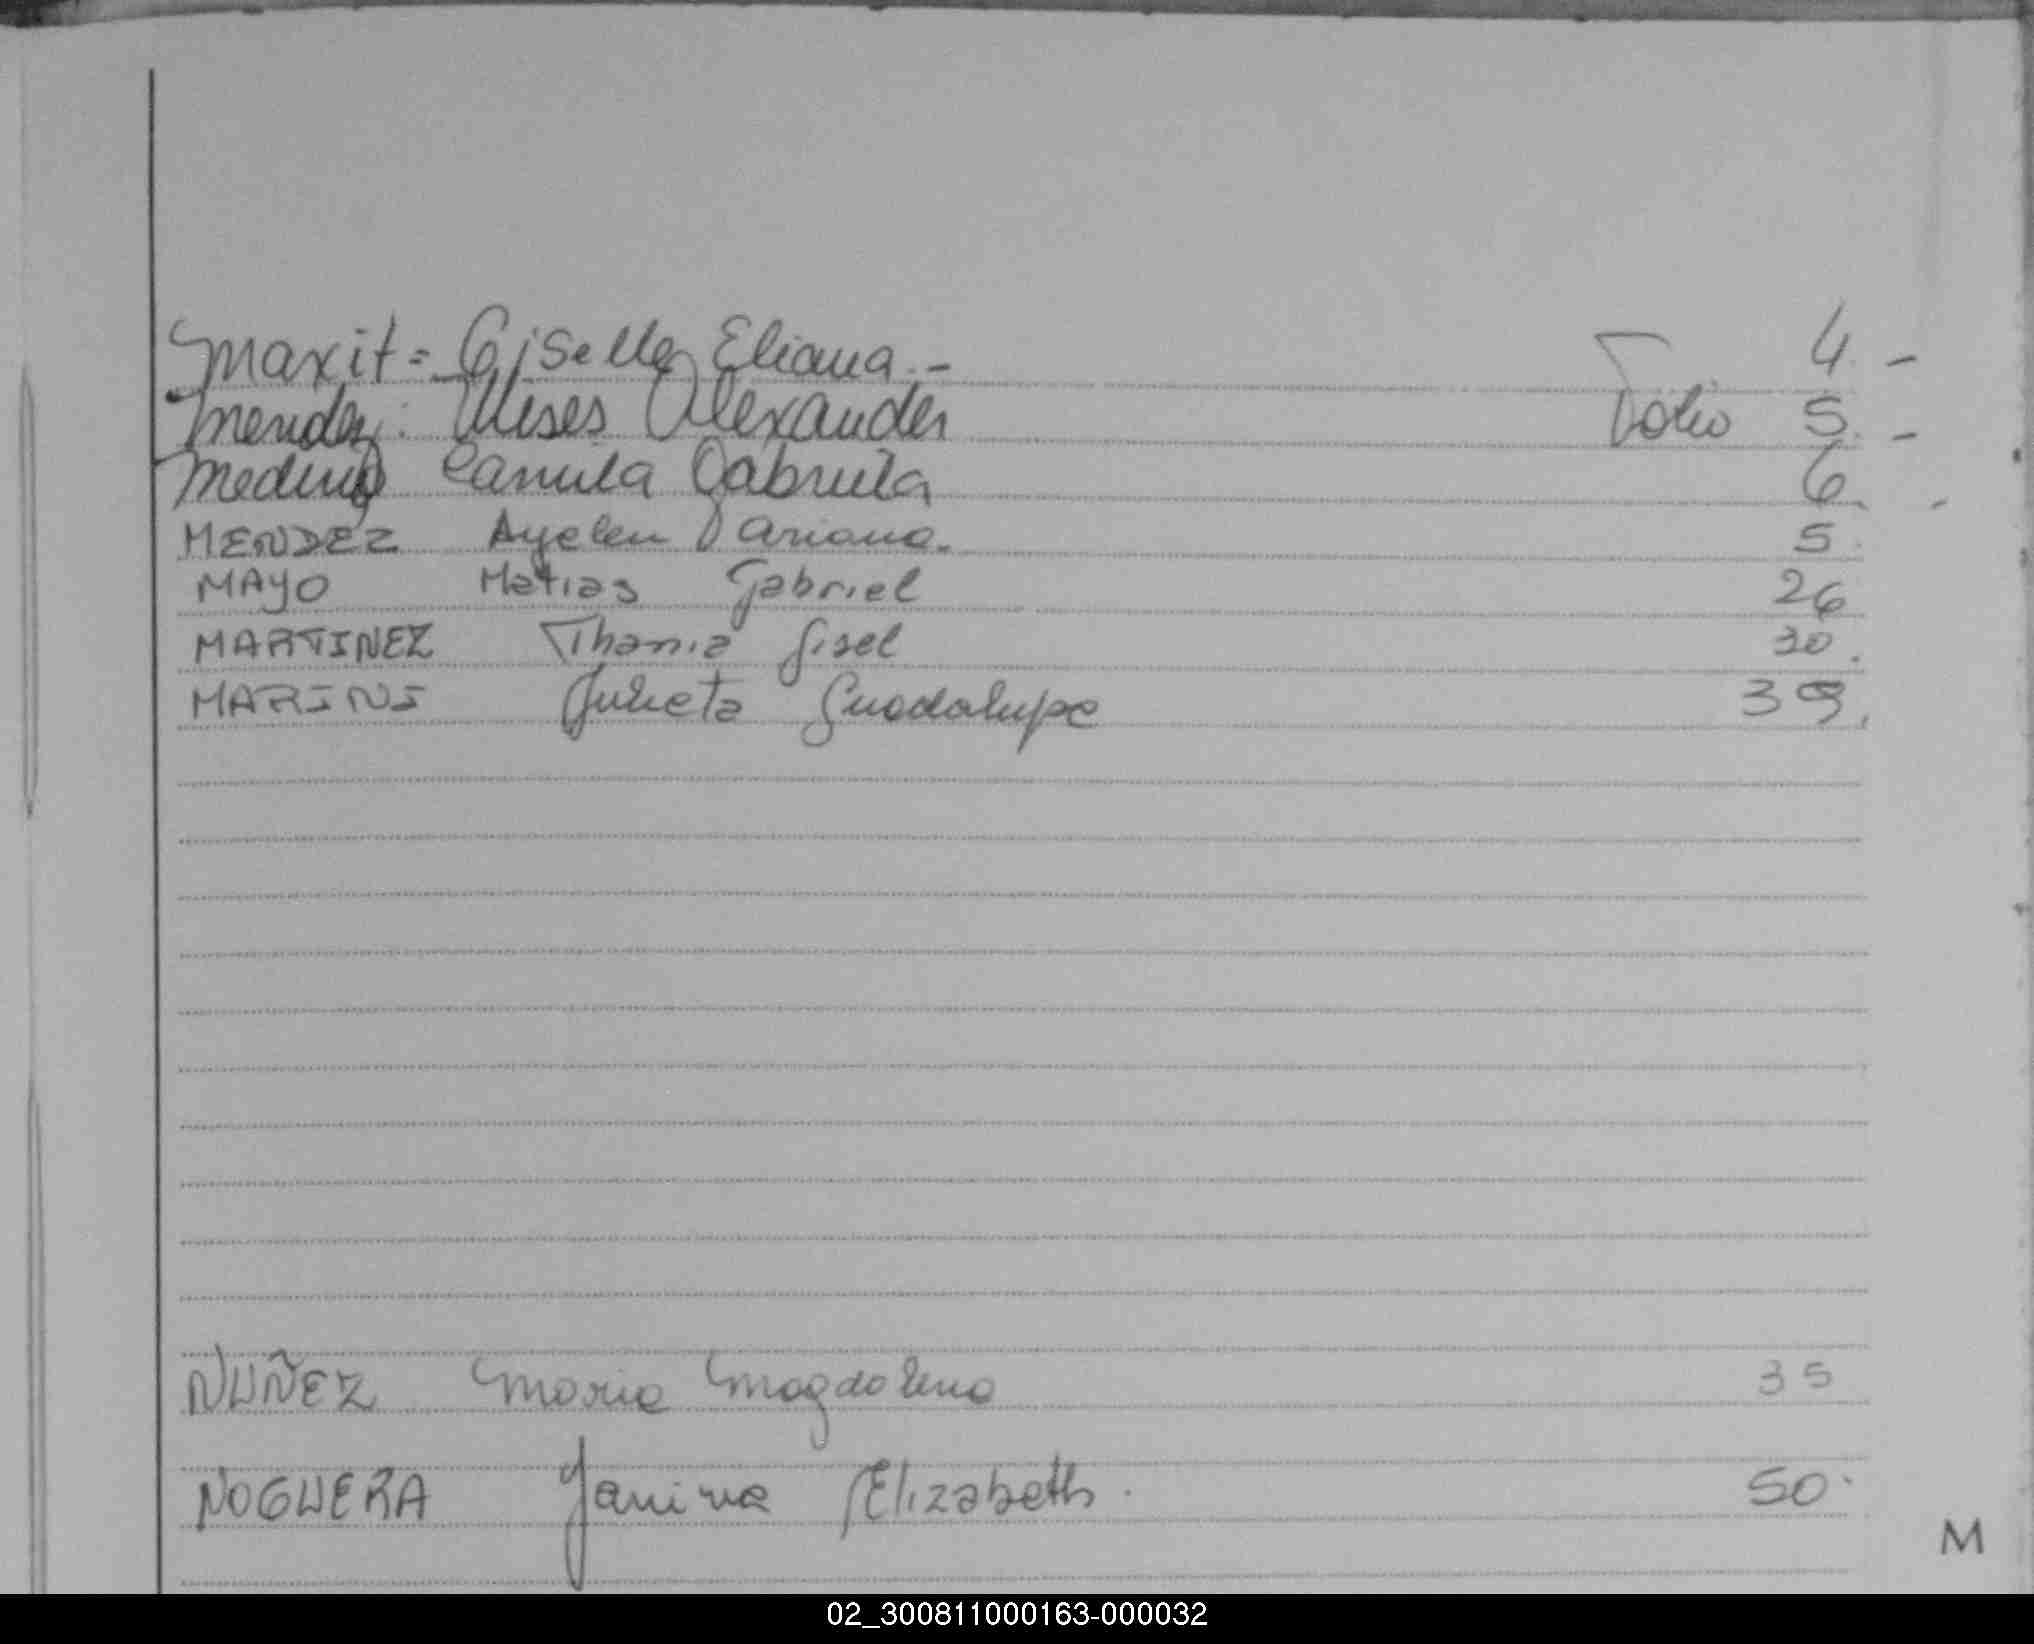 Maxit = Giselle Eliana.- 4 -
Mendez: Ulises Alexander Folio 5. -
Medina Camila Gabriela 6. -
MENDEZ Ayelen Dariana. 5.
MAYO Matias Gabriel 26
MARTINEZ Thania Gisel 30.
MARINI Julieta Guadalupe 39.
NUÑEZ Maria Magdalena 35
NOGUERA Yanina Elizabeth. 50.
M
02_300811000163-000032